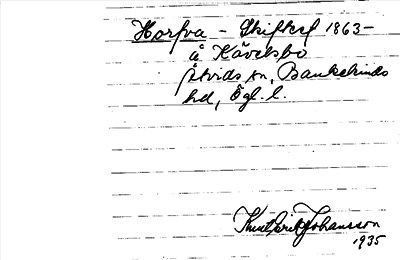 Horfva - Skiftesf 1863-
å Kävelsbo
Åtvids sn, Bankekinds
hd, Ögl. l.
Knut Erik Johansson
1935